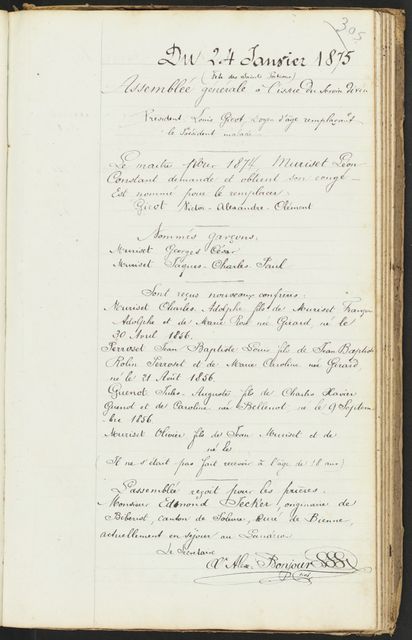 305
Du 24 Janvier 1875
(Fête des Saints
Assemblée générale à l'issue du Service divin
Président Louis Gicot Doyen d'âge remplaçant
le Président malade
Le maître 1874 Muriset Léon
Constant demande et obtient son congé
Est nommé pour le remplacer
Gicot Victor-Alexandre-Clément
Nommés garçons,
Muriset Georges César
Muriset Jaques-Charles-Paul
Sont reçus nouveaux confrères:
Muriset Charles Adolphe fils de Muriset François
Adolphe et de Marie née Girard, né le
30 Avril 1856.
Perroset Jean Baptiste Louis fils de Jean Baptiste
Robin Perroset et de Marie Caroline née Girard
né le 21 Août 1856.
Guenot Jules-Auguste fils de Charles Xavier
Guenot et de Caroline née Bellenot né le 9 Septem
bre 1856
Muriset Olivier fils de Jean Muriset et de
né le
Il ne s'était pas fait recevoir à l'âge de 18 ans)
L'assemblée reçoit pour les prières.
Monsieur Edmond Secker, originaire de
Biberist, canton de Soleure, Curé de Bienne,
actuellement en séjour au Landeron
Le Secrétaire
Alex. Bonjour